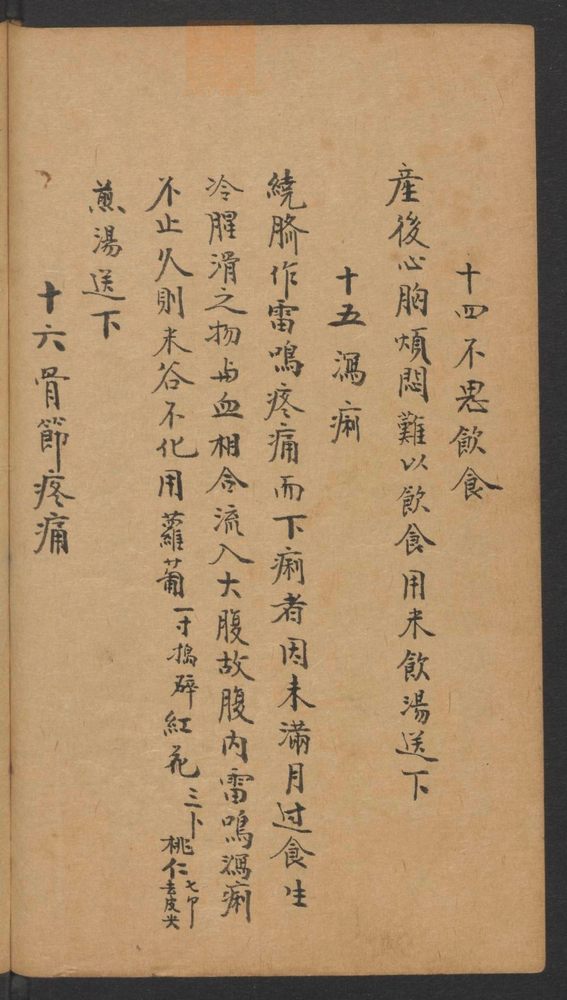 十四不思飲食
産後心胸煩悶難以飲食用米飲湯送下
十五瀉痢
繞臍作雷鳴疼痛而下痢者因未滿月过食生
冷腥滑之物与血相合流入大腹故腹内雷鳴瀉痢
不止久則米谷不化用蘿蔔一寸搗碎紅花三卜桃仁七去皮尖
煎湯送下
十六骨節疼痛